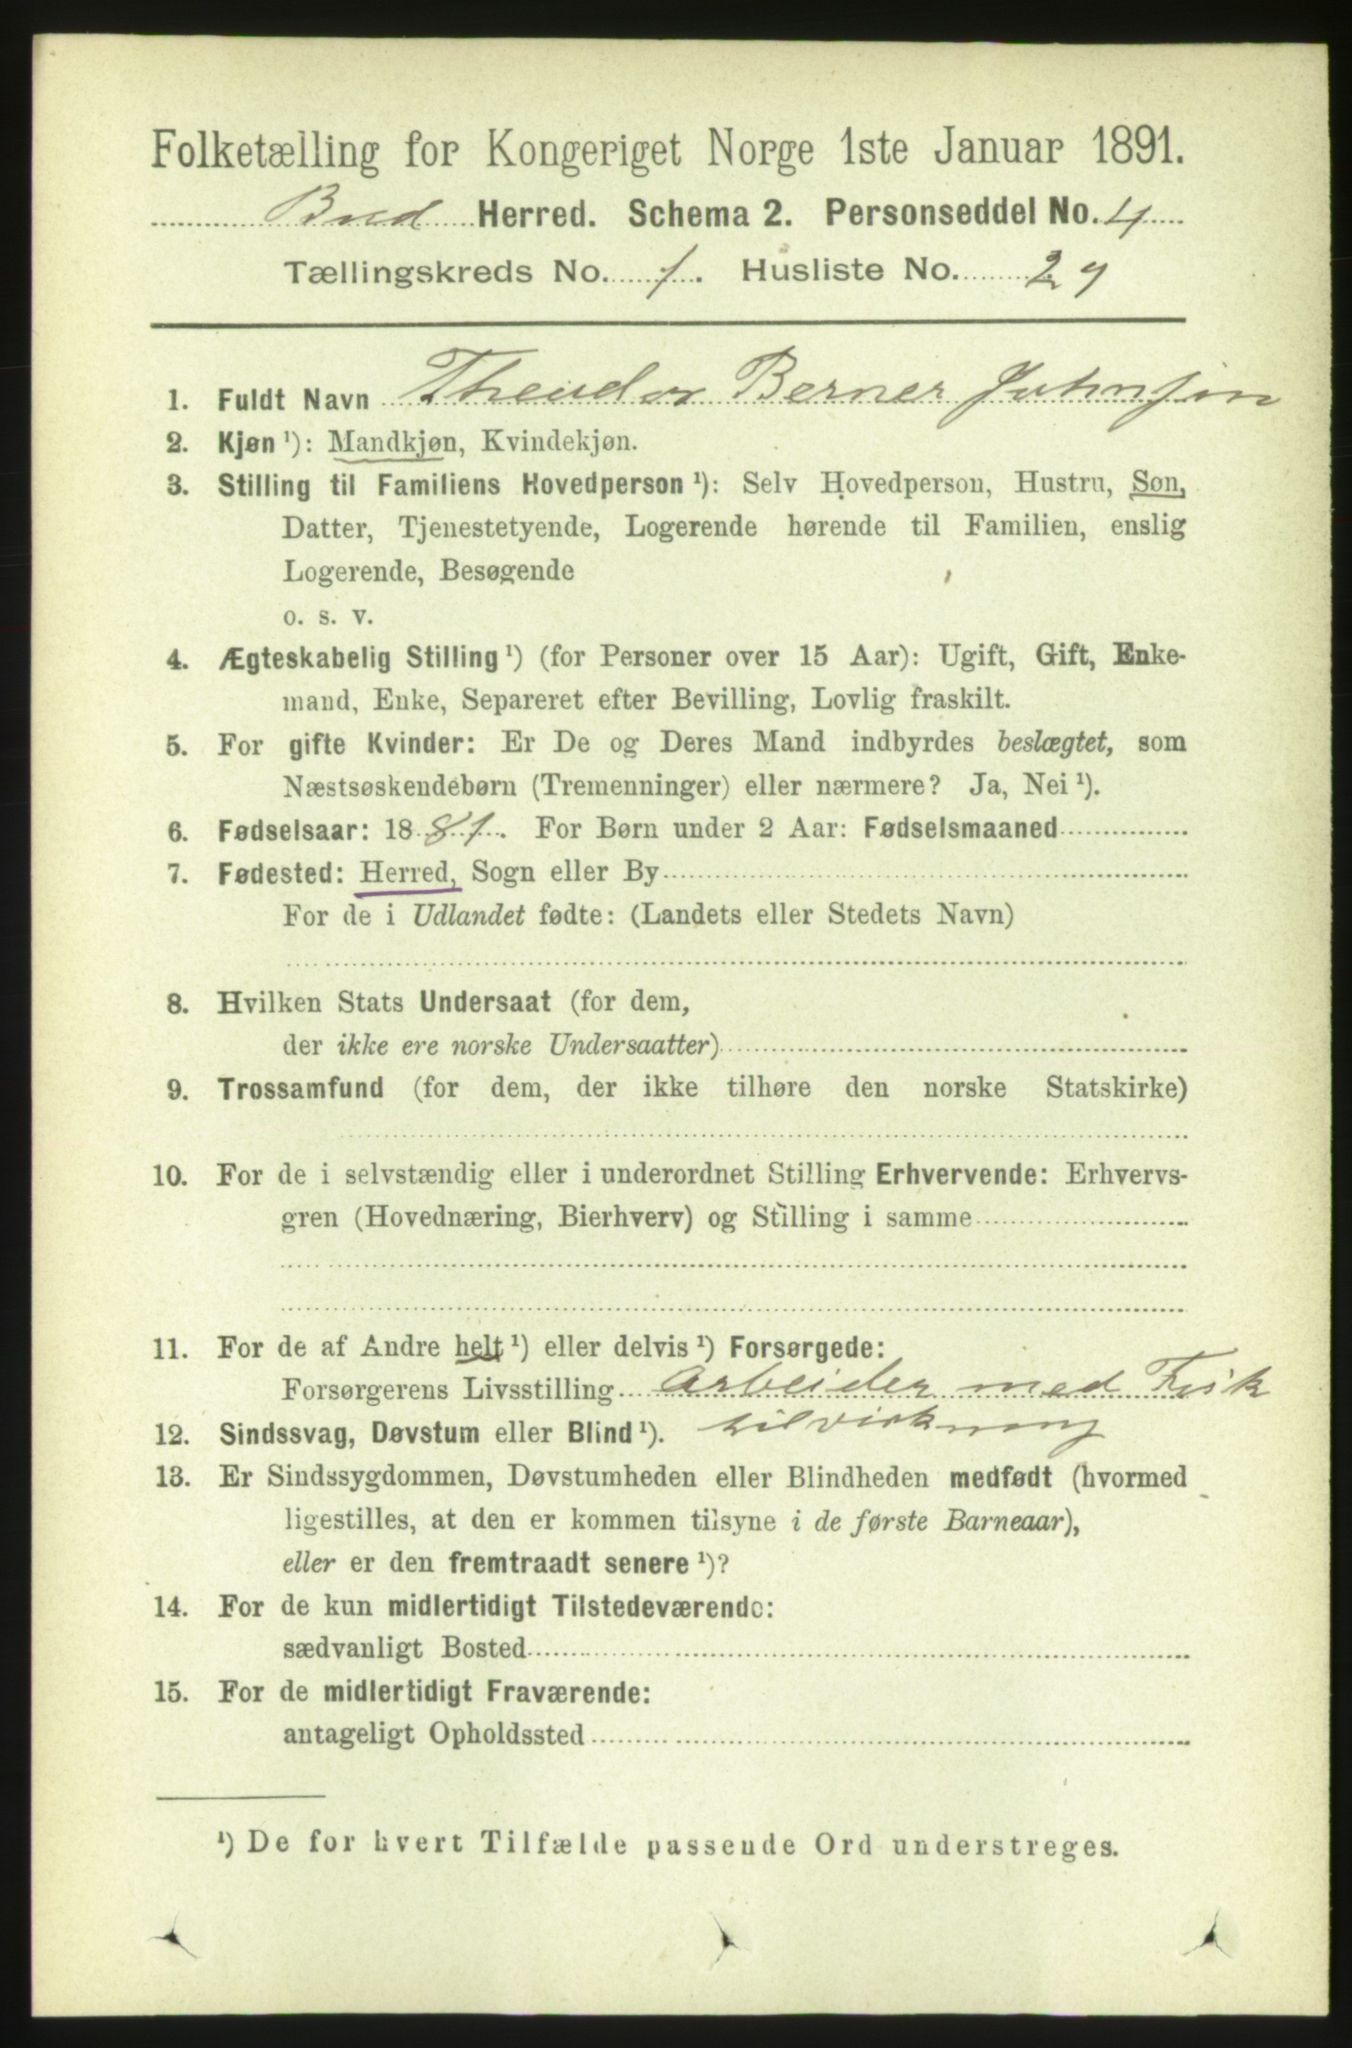 Folketælling for Kongeriget Norge 1ste Januar 1891.
Bud Herred. Schema 2. Personseddel No. 4
Tællingskreds No. 1. Husliste No. 29
1. Fuldt Navn Theodor Berner Johnsen
2. Kjøn ¹): Mandkjøn, Kvindekjøn.
3. Stilling til Familiens Hovedperson ¹): Selv Hovedperson, Hustru, Søn,
Datter, Tjenestetyende, Logerende hørende til Familien, enslig
Logerende, Besøgende
o. s. v.
4. Ægteskabelig Stilling ¹) (for Personer over 15 Aar): Ugift, Gift, Enke-
mand, Enke, Separeret efter Bevilling, Lovlig fraskilt.
5. For gifte Kvinder: Er De og Deres Mand indbyrdes beslægtet, som
Næstsøskendebørn (Tremenninger) eller nærmere? Ja, Nei ¹).
6. Fødselsaar: 1881. For Børn under 2 Aar: Fødselsmaaned
7. Fødested: Herred, Sogn eller By
For de i Udlandet fødte: (Landets eller Stedets Navn)
8. Hvilken Stats Undersaat (for dem,
der ikke ere norske Undersaatter)
9. Trossamfund (for dem, der ikke tilhøre den norske Statskirke)
10. For de i selvstændig eller i underordnet Stilling Erhvervende: Erhvervs-
gren (Hovednæring, Bierhverv) og Stilling i samme
11. For de af Andre helt ¹) eller delvis ¹) Forsørgede:
Forsørgerens Livsstilling Arbeider med Fisk
12. Sindssvag, Døvstum eller Blind ¹). tilvirkning
13. Er Sindssygdommen, Døvstumheden eller Blindheden medfødt (hvormed
ligestilles, at den er kommen tilsyne i de første Barneaar),
eller er den fremtraadt senere ¹)?
14. For de kun midlertidigt Tilstedeværende:
sædvanligt Bosted
15. For de midlertidigt Fraværende:
antageligt Opholdssted
¹) De for hvert Tilfælde passende Ord understreges.